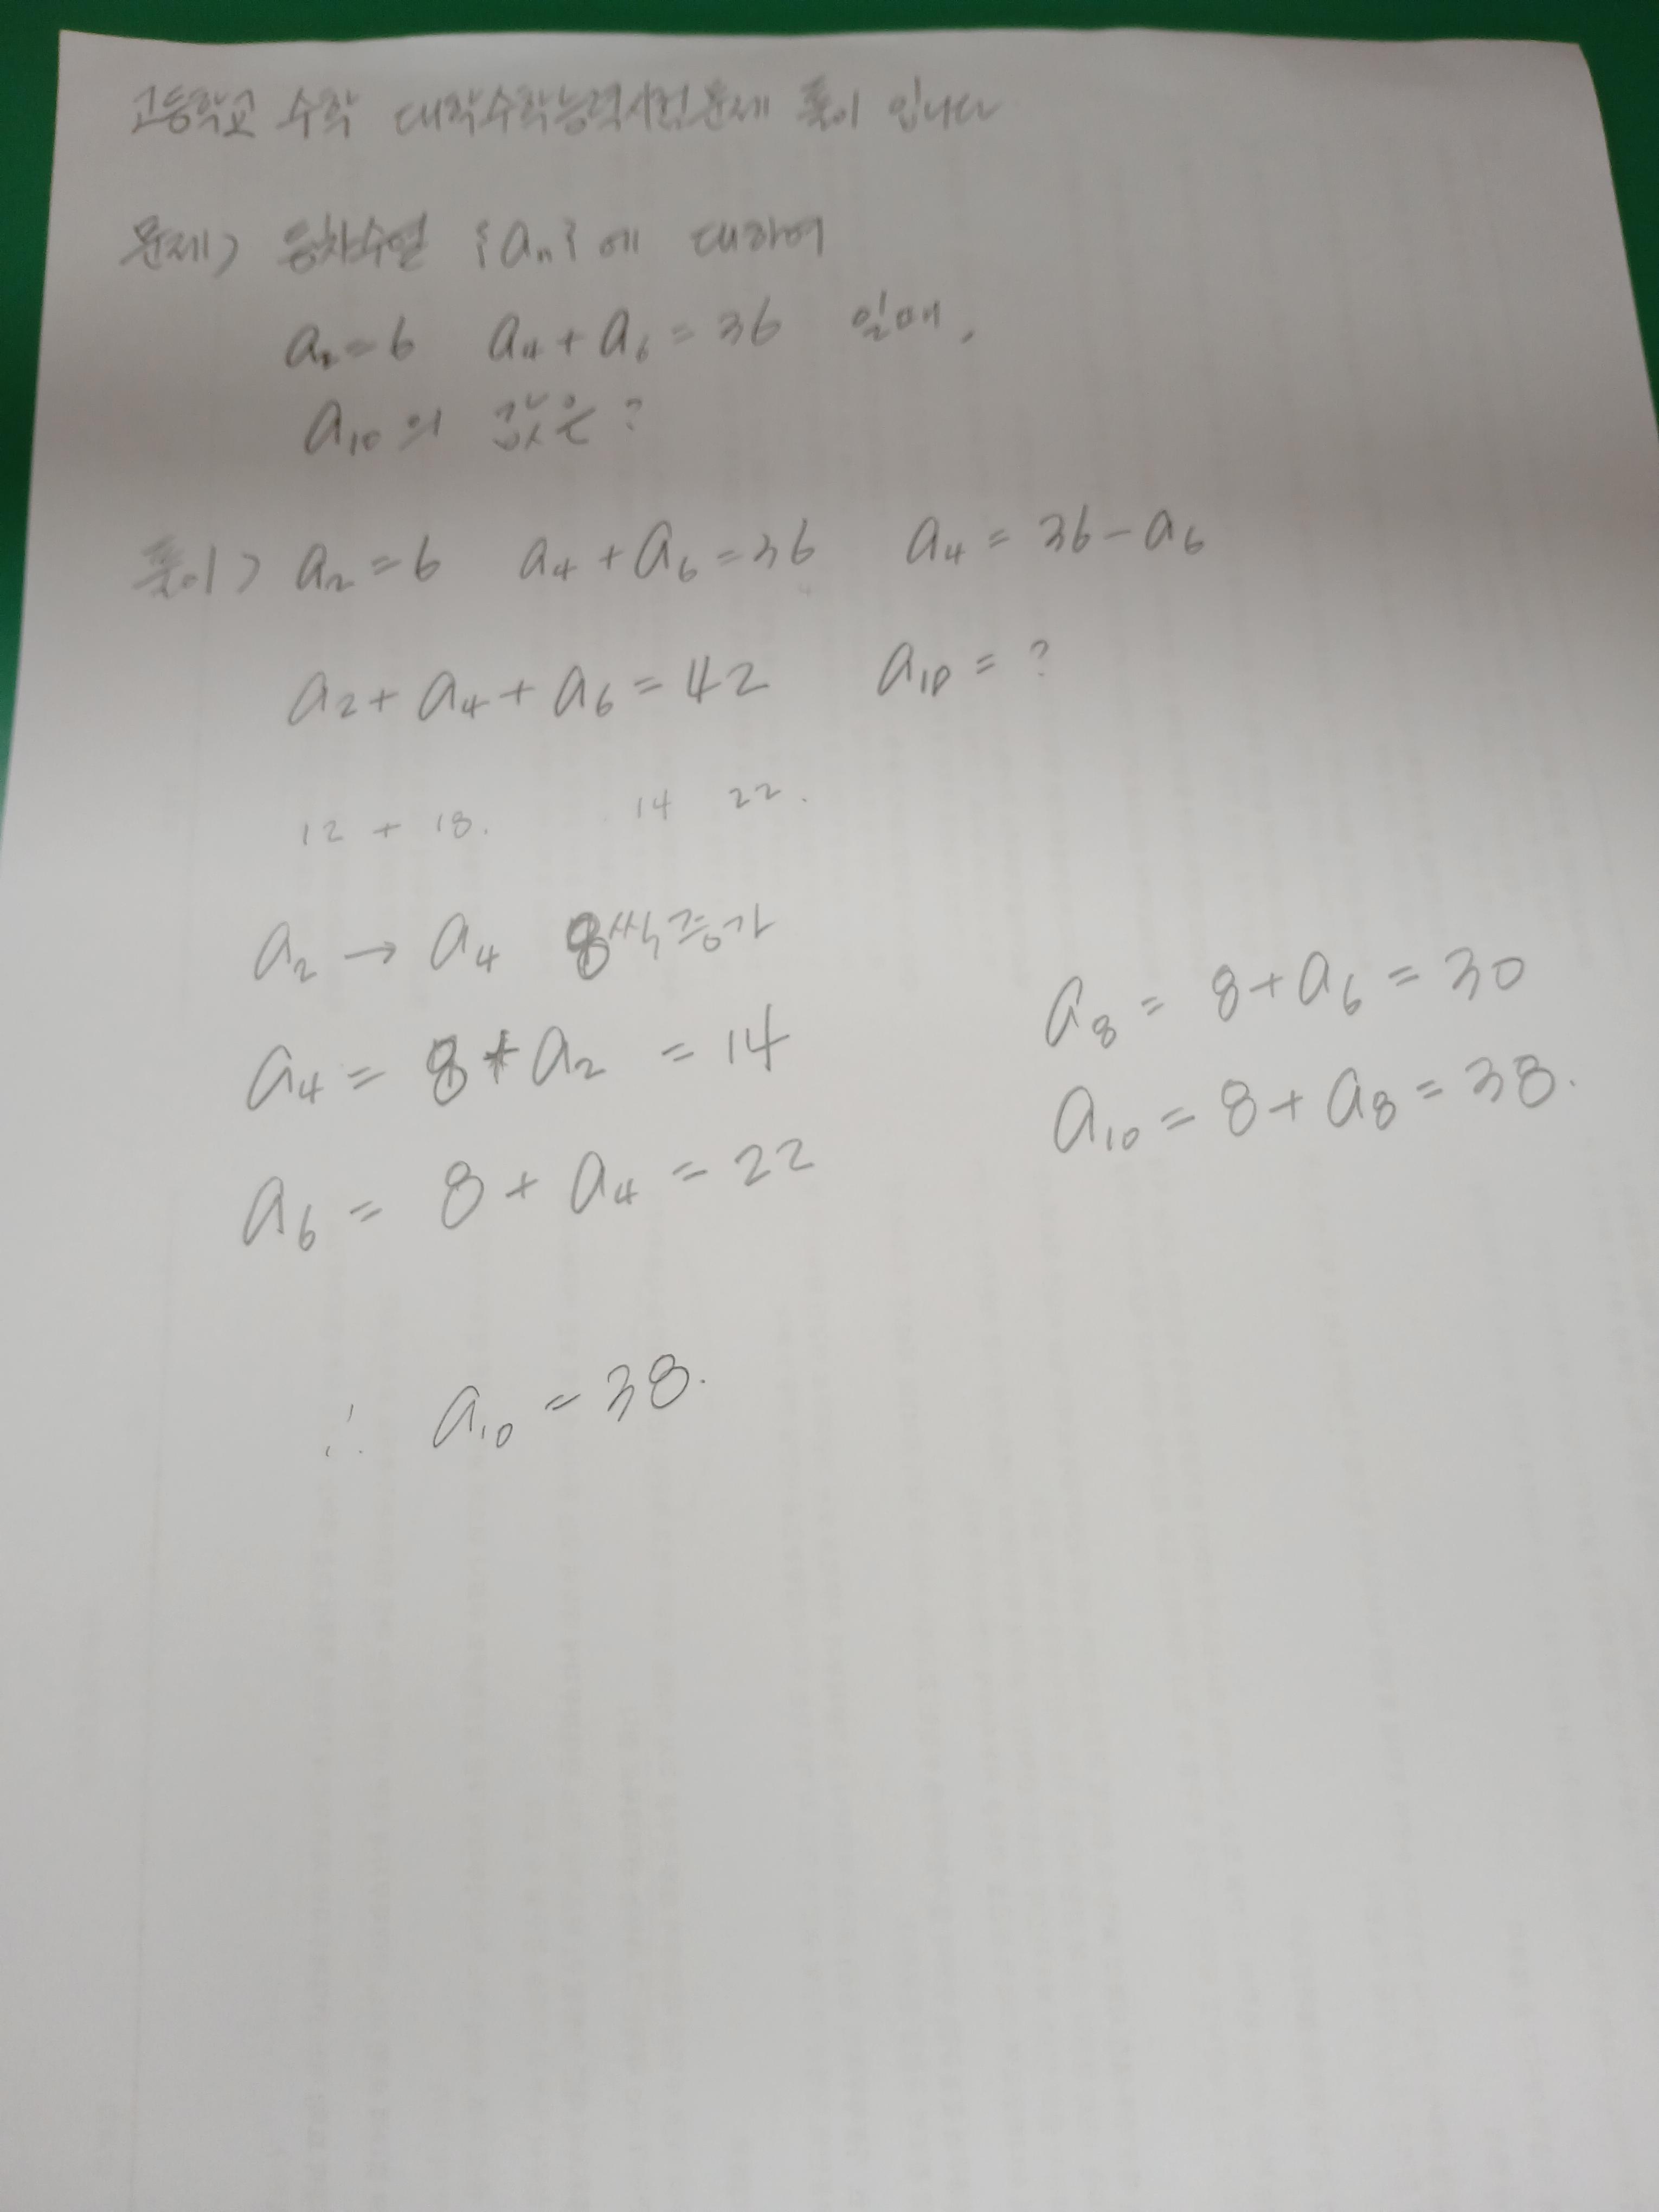 고등학교 수학 대학수학능력시험문제 풀이 입니다
문제) 등차수열 {aₙ}에 대하여
a₂=6 a₄+a₆=36 일때,
a₁₀의 값은?
풀이) a₂=6 a₄+a₆=36 a₄=36-a₆
a₂+a₄+a₆=42 a₁₀=?
12 + 18. 14 22.
a₂→a₄ 8씩증가
a₄=8+a₂=14
a₆=8+a₄=22
a₈=8+a₆=30
a₁₀=8+a₈=38.
∴ a₁₀=38.